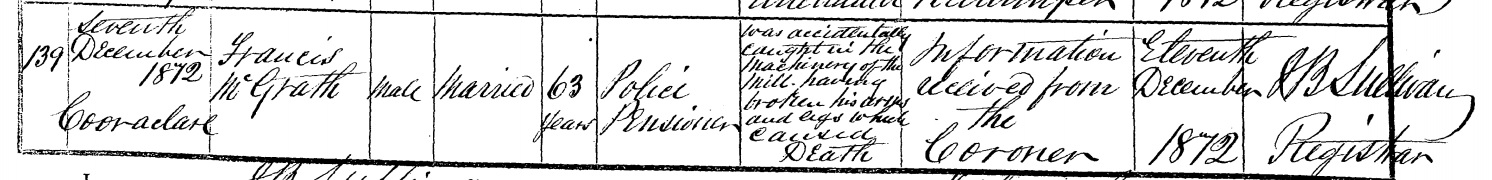 139
seventh
December
1872
Cooraclare
Francis
McGrath
Male
Married
63
years
Police
Pensioner
was accidentally
caught in the
Machinery of the
Mill. having
broken his arms
and legs which
caused
Death
Information
received from
the
Coroner
Eleventh
December
1872
JB Sullivan
Registrar